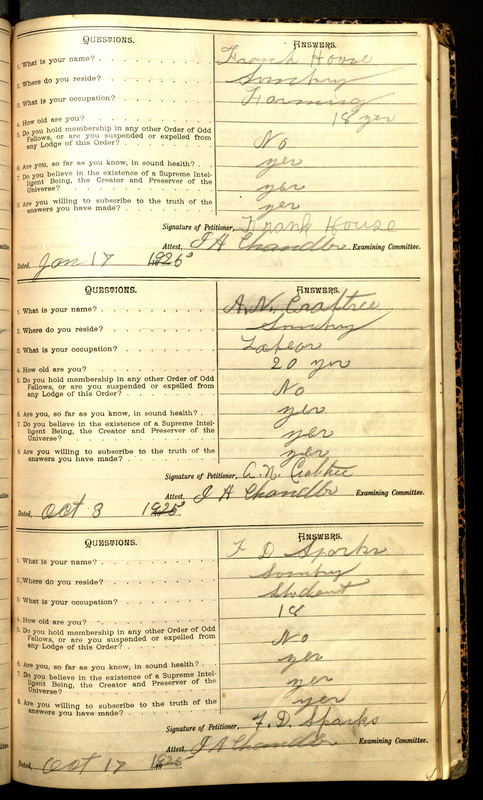 QUESTIONS. ANSWERS.
1. What is your name? Frank House
2. Where do you reside?
3. What is your occupation? Farming
4. How old are you? 18 yer
5. Do you hold membership in any other Order of Odd
Fellows, or are you suspended or expelled from
any Lodge of this Order? No
6. Are you, so far as you know, in sound health? yer
7. Do you believe in the existence of a Supreme Intel-
ligent Being, the Creator and Preserver of the
Universe? yer
8. Are you willing to subscribe to the truth of the
answers you have made? yer
Signature of Petitioner, Frank House
Attest, J A Chandler Examining Committee.
Dated, Jan 17 1926
QUESTIONS. ANSWERS.
1. What is your name? A. N. Crabtree
2. Where do you reside?
3. What is your occupation? Labeor
4. How old are you? 20 yer
5. Do you hold membership in any other Order of Odd
Fellows, or are you suspended or expelled from
any Lodge of this Order? No
6. Are you, so far as you know, in sound health? yer
7. Do you believe in the existence of a Supreme Intel-
ligent Being, the Creator and Preserver of the
Universe? yer
8. Are you willing to subscribe to the truth of the
answers you have made? yer
Signature of Petitioner, A. N. Crabtree
Attest, J A Chandler Examining Committee.
Dated, Oct 3 1925
QUESTIONS. ANSWERS.
1. What is your name? F D Sparks
2. Where do you reside?
3. What is your occupation? Student
4. How old are you? 18
5. Do you hold membership in any other Order of Odd
Fellows, or are you suspended or expelled from
any Lodge of this Order? No
6. Are you, so far as you know, in sound health? yer
7. Do you believe in the existence of a Supreme Intel-
ligent Being, the Creator and Preserver of the
Universe? yer
8. Are you willing to subscribe to the truth of the
answers you have made? yer
Signature of Petitioner, F. D. Sparks
Attest, J A Chandler Examining Committee.
Dated, Oct 17